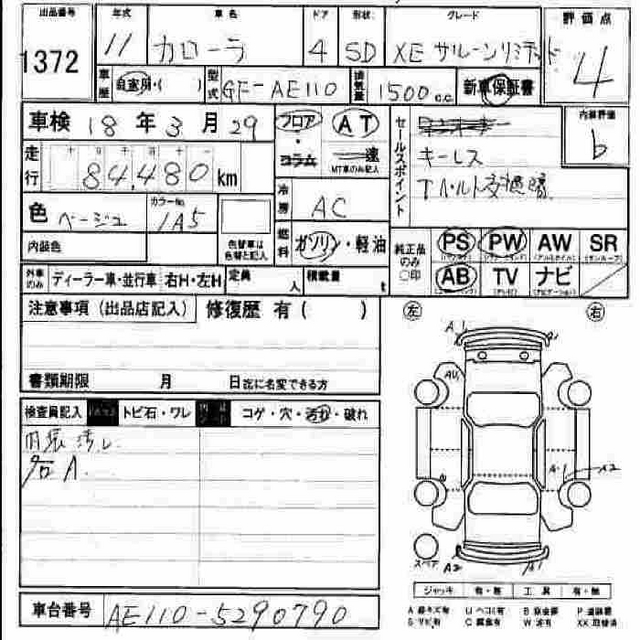 出品番号 年式 車名 ドア 形状 グレード 評価点
1372 11 カローラ 4 SD XE サルーンリミテッド 4
車歴 自家用・( ) 型式 GF-AE110 排気量 1500 c.c. 新車保証書
車検 18 年 3 月 29 フロア AT セールスポイント 内装評価
コラム 速 b
MT車のみ記入 キーレス
走行 84,480 km 冷房 AC Tベルト交換
色 ベージュ カラーNo. 1A5 燃料 ガソリン・軽油 純正品のみ○印 PS PW AW SR
内装色 色替車は色替と記入 AB TV ナビ
外車のみ ディーラー車・並行車 右H・左H 定員 人 積載量 t
注意事項(出品店記入) 修復歴 有( ) 左 右
A1
AU1
書類期限 月 日迄に名変できる方
検査員記入 トビ石・ワレ コゲ・穴・汚れ・破れ
内張汚レ
右A. A1 A2
スペア A2 A1
ジャッキ 有・無 工具 有・無
車台番号 AE110-5290790